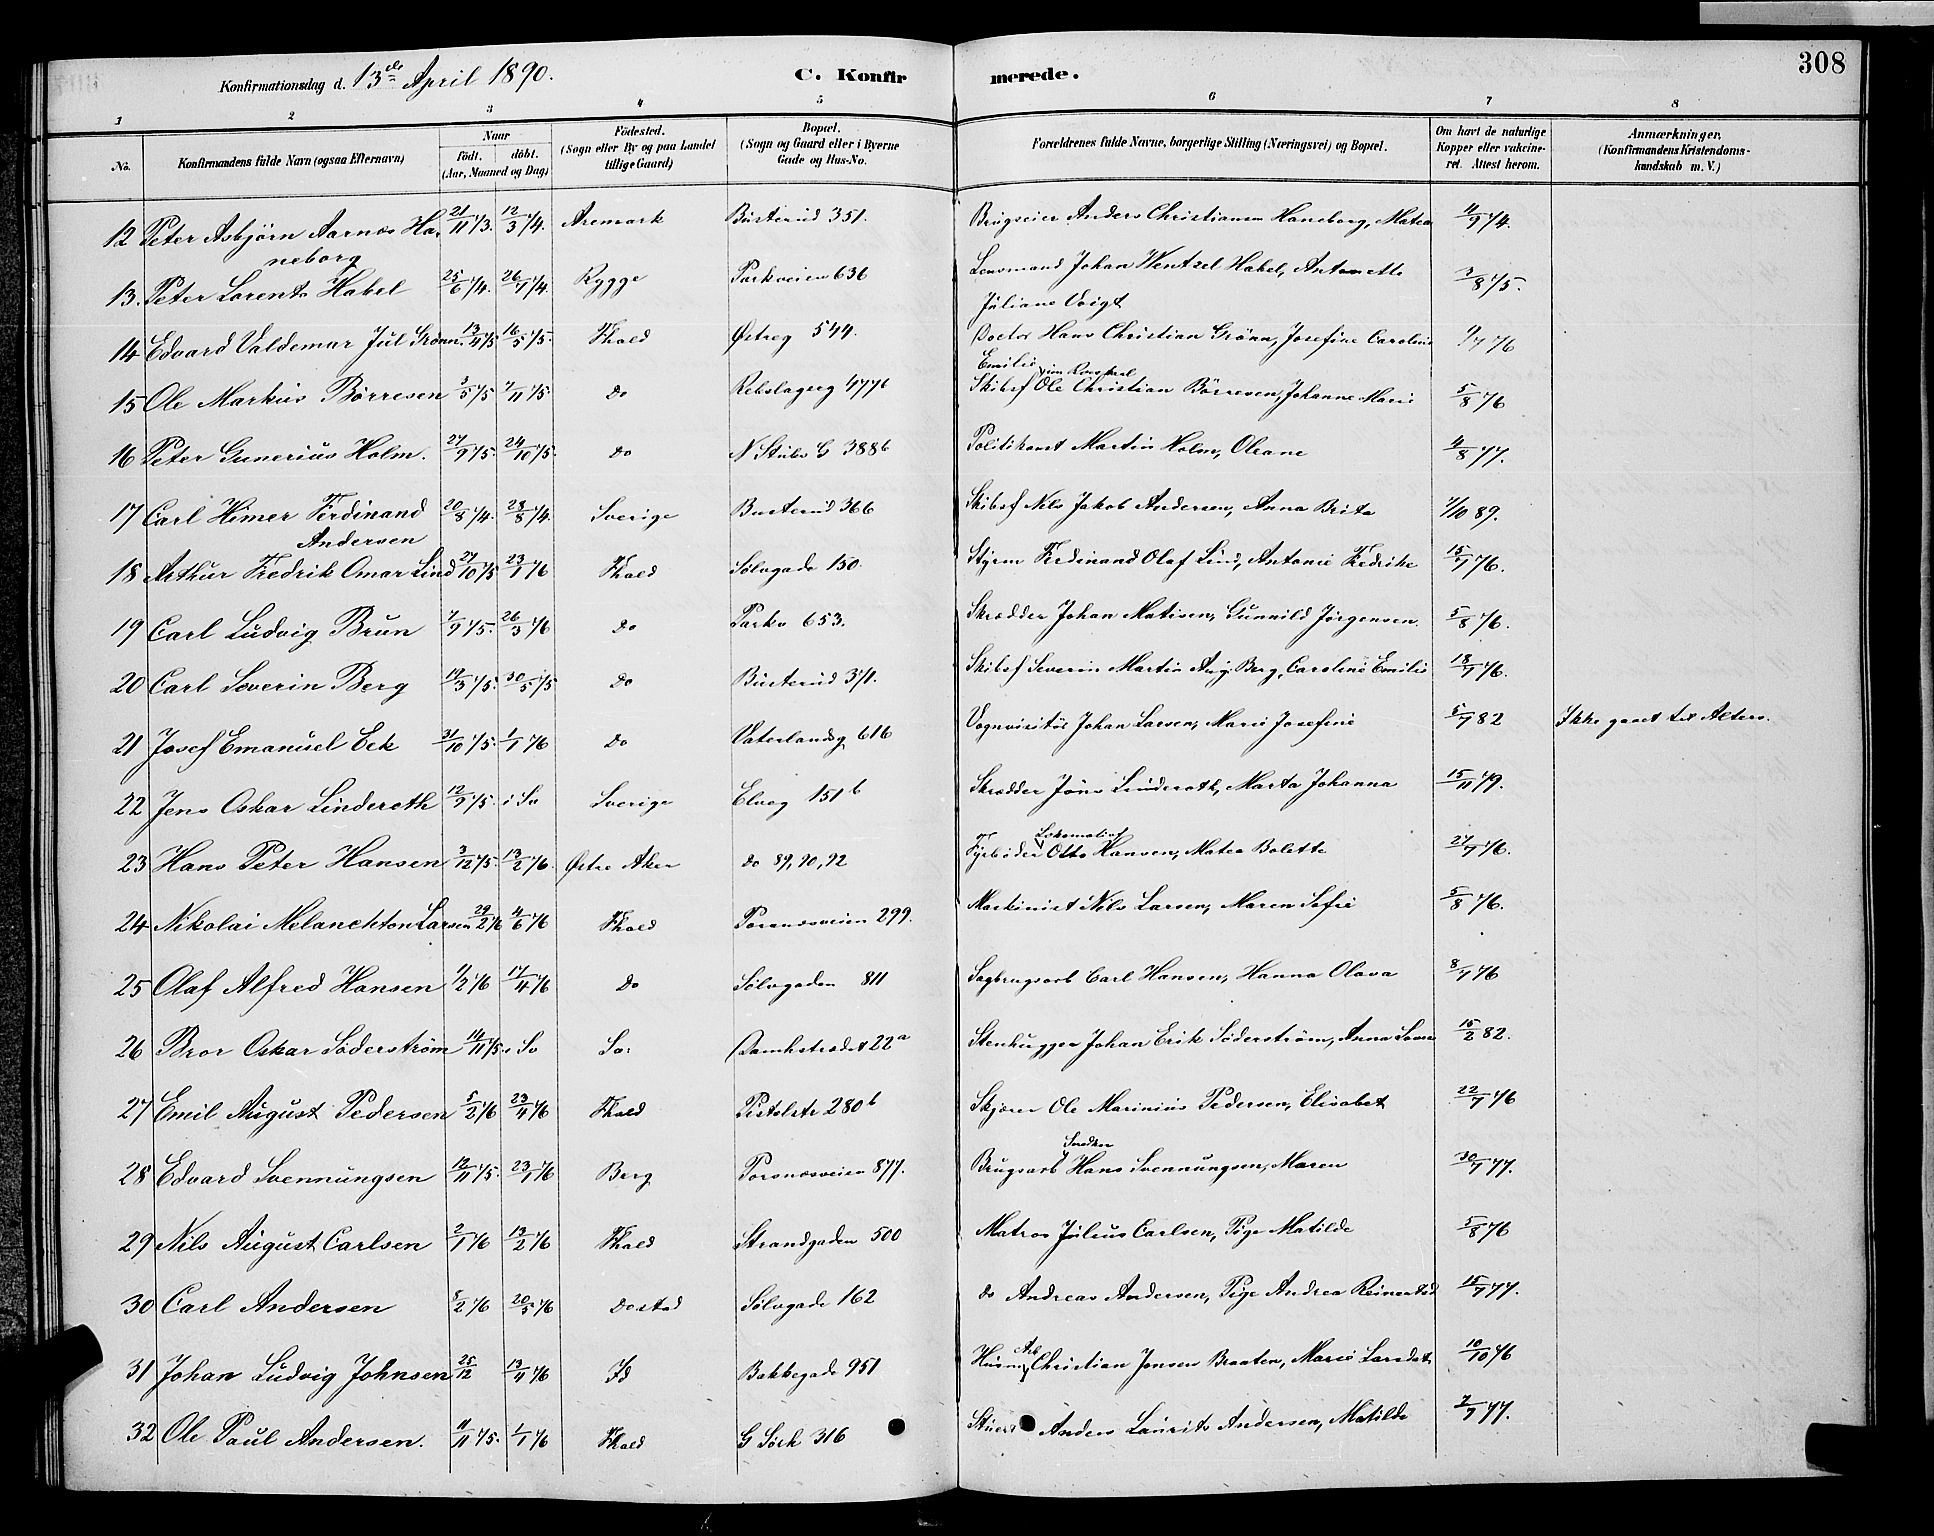 308
Konfirmationsdag d. 13de April 1890.
C. Konfirmerede.
1 2 3 4 5 6 7 8
No.
Konfirmandens fulde Navn (ogsaa Efternavn)
Naar
født. døbt.
(Aar, Maaned og Dag)
Fødested.
(Sogn eller By og paa Landet
tillige Gaard)
Bopæl.
(Sogn og Gaard eller i Byerne
Gade og Hus-No.
Forældrenes fulde Navne, borgerlige Stilling (Næringsvei) og Bopæl.
Om havt de naturlige
Kopper eller vakcine-
ret. Attest herom.
Anmærkninger,
(Konfirmandens Kristendoms-
kundskab m. V.)
12 Peter Asbjörn Aarnes Ha- 21/11 73. 12/3 74. Aremark Busterud 351. Brugseier Anders Christiansen Haneborg, Matea 4/9 74.
neborg
13. Peter Lorents Habel 25/6 74. 26/7 74. Rygge Parkveien 636 Lensmand Johan Wentzel Habel, Antonette 3/8 75.
Juliane Voigt
14 Edvard Valdemar Jul Grönn. 13/4 75 16/5 75. Fhald Østreg 544. Doctor Hans Christian Grönn, Josefine Caroline 9/7 76
Emilie
15 Ole Markus Börresen 3/5 75 7/11 75. Do Rebslagerg 477b Skibsf Ole Christian Börresen, Johanne Marie 5/8 76
16 Peter Gunerius Holm. 27/9 75. 24/10 75. Do N Stubs G 388b Politikonst Martin Holm, Oleane 4/8 77.
17 Carl Himer Ferdinand 20/8 74. 28/8 74. Sverige Busterud 366 Skibsf Nils Jakob Andersen, Anna Brita 7/10 89.
Andersen
18 Arthur Fredrik Omar Lind 27/10 75 23/1 76 Fhald Sölvgade 150. Styrm Ferdinand Olaf Lind, Antonie Fedrike 15/7 76.
19 Carl Ludvig Brun 7/9 75. 26/3 76 Do Parkv 653. Skrædder Johan Matisen, Gunnild Jörgensen. 5/8 76.
20 Carl Severin Berg 14/3 75. 30/5 75 Do Busterud 371. Skibsf Severin Martin Aug. Berg, Caroline Emilie 18/7 76.
21 Josef Emanuel Eek 31/10 75. 1/1 76 Do Vaterlandsg 616 Vognvisitör Johan Larsen, Marie Josefine 5/7 82 Ikke gaaet til Alters.
22 Jens Oskar Linderoth 12/9 75. i So Sverige Elveg 151b Skrædder Jöns Linderoth, Marta Johanna 15/11 79.
23 Hans Peter Hansen 3/12 75. 13/2 76. Østre Aker do 89, 90, 92 Fyrböder Lokomotiv Otto Hansen, Matea Bolette 27/7 76.
24 Nikolai Melanchton Larsen 29/2 76 4/6 76 Fhald Torsnæsveien 299. Maskinist Nils Larsen, Maren Sofie 5/8 76.
25 Olaf Alfred Hansen 1/2 76 17/4 76 Do Sölvgaden 811 Sagbrugsarb Carl Hansen, Hanna Olava 8/7 76
26 Bror Oskar Söderström 14/11 75. i So So: Damhstrædet 22a Stenhugger Johan Erik Söderström, Anna 15/2 82.
27 Emil August Pedersen 5/2 76 23/4 76 Fhald Pistolstr 280b Skjörer Ole Marinius Pedersen, Elisabet 22/7 76
28 Edvard Svennungsen 12/11 75. 23/1 76 Berg Torsnæsveien 877. Brugsarb Hans Svennungsen, Maren 30/7 77.
29 Nils August Carlsen 2/1 76 13/2 76 Fhald Strandgaden 500 Matros Julius Carlsen, Pige Matilde 5/8 76
30 Carl Andersen 8/2 76 20/5 76 Do stad Sölvgade 162 do Andreas Andersen, Pige Andrea Reinertsd 15/7 77.
31 Johan Ludvig Johnsen 25/12 13/4 76 Id Bakkegade 951 Husm Arb Christian Jensen Braaten, Marie Larsdat 10/10 76
32 Ole Paul Andersen. 11/11 75. 1/1 76 Fhald G Sörh 316 Stuert Anders Laurits Andersen, Matilde 7/7 77.